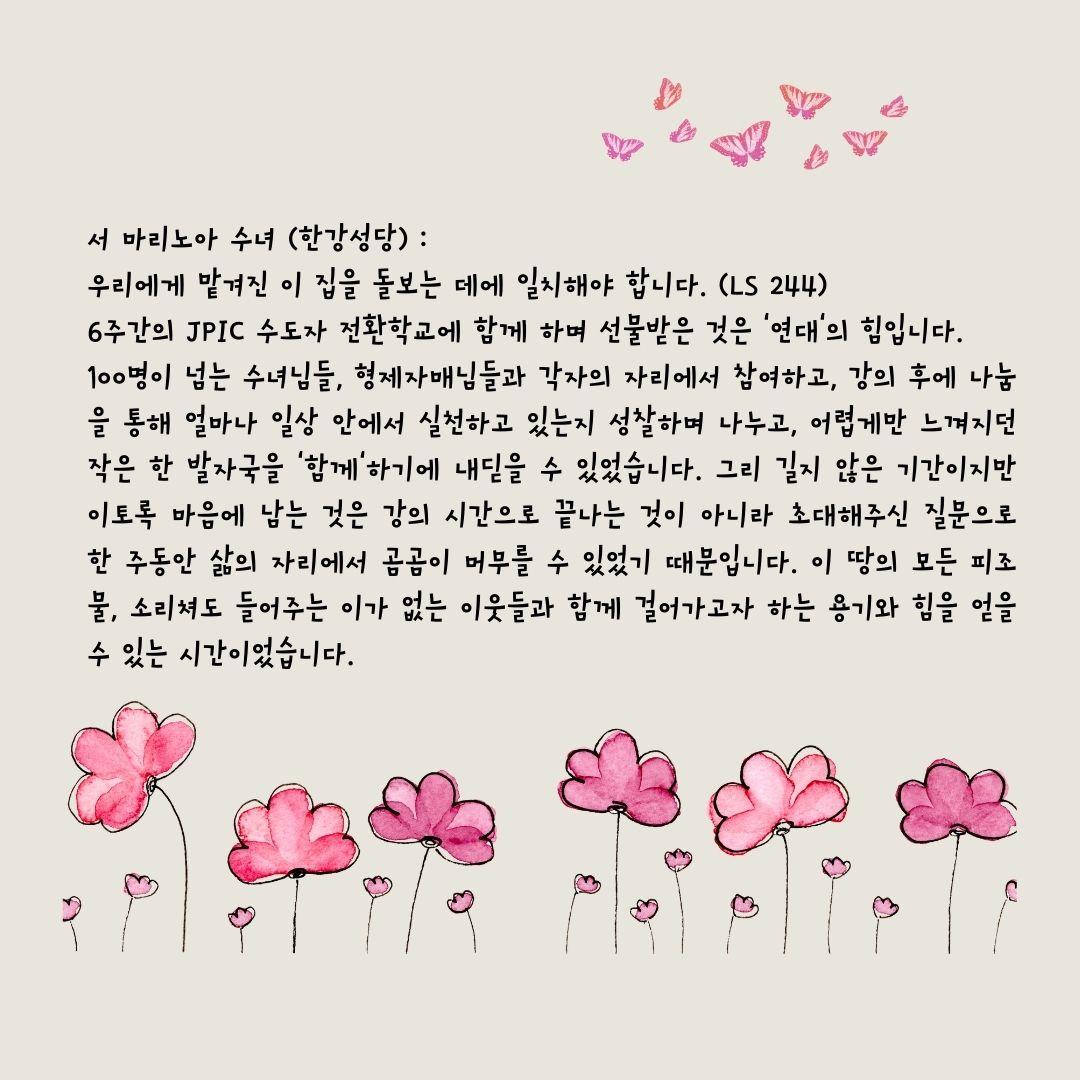 서 마리노아 수녀 (한강성당) :
우리에게 맡겨진 이 집을 돌보는 데에 일치해야 합니다. (LS 244)
6주간의 JPIC 수도자 전환학교에 함께 하며 선물받은 것은 '연대'의 힘입니다.
100명이 넘는 수녀님들, 형제자매님들과 각자의 자리에서 참여하고, 강의 후에 나눔
을 통해 얼마나 일상 안에서 실천하고 있는지 성찰하며 나누고, 어렵게만 느껴지던
작은 한 발자국을 '함께'하기에 내딛을 수 있었습니다. 그리 길지 않은 기간이지만
이토록 마음에 남는 것은 강의 시간으로 끝나는 것이 아니라 초대해주신 질문으로
한 주동안 삶의 자리에서 곰곰이 머무를 수 있었기 때문입니다. 이 땅의 모든 피조
물, 소리쳐도 들어주는 이가 없는 이웃들과 함께 걸어가고자 하는 용기와 힘을 얻을
수 있는 시간이었습니다.